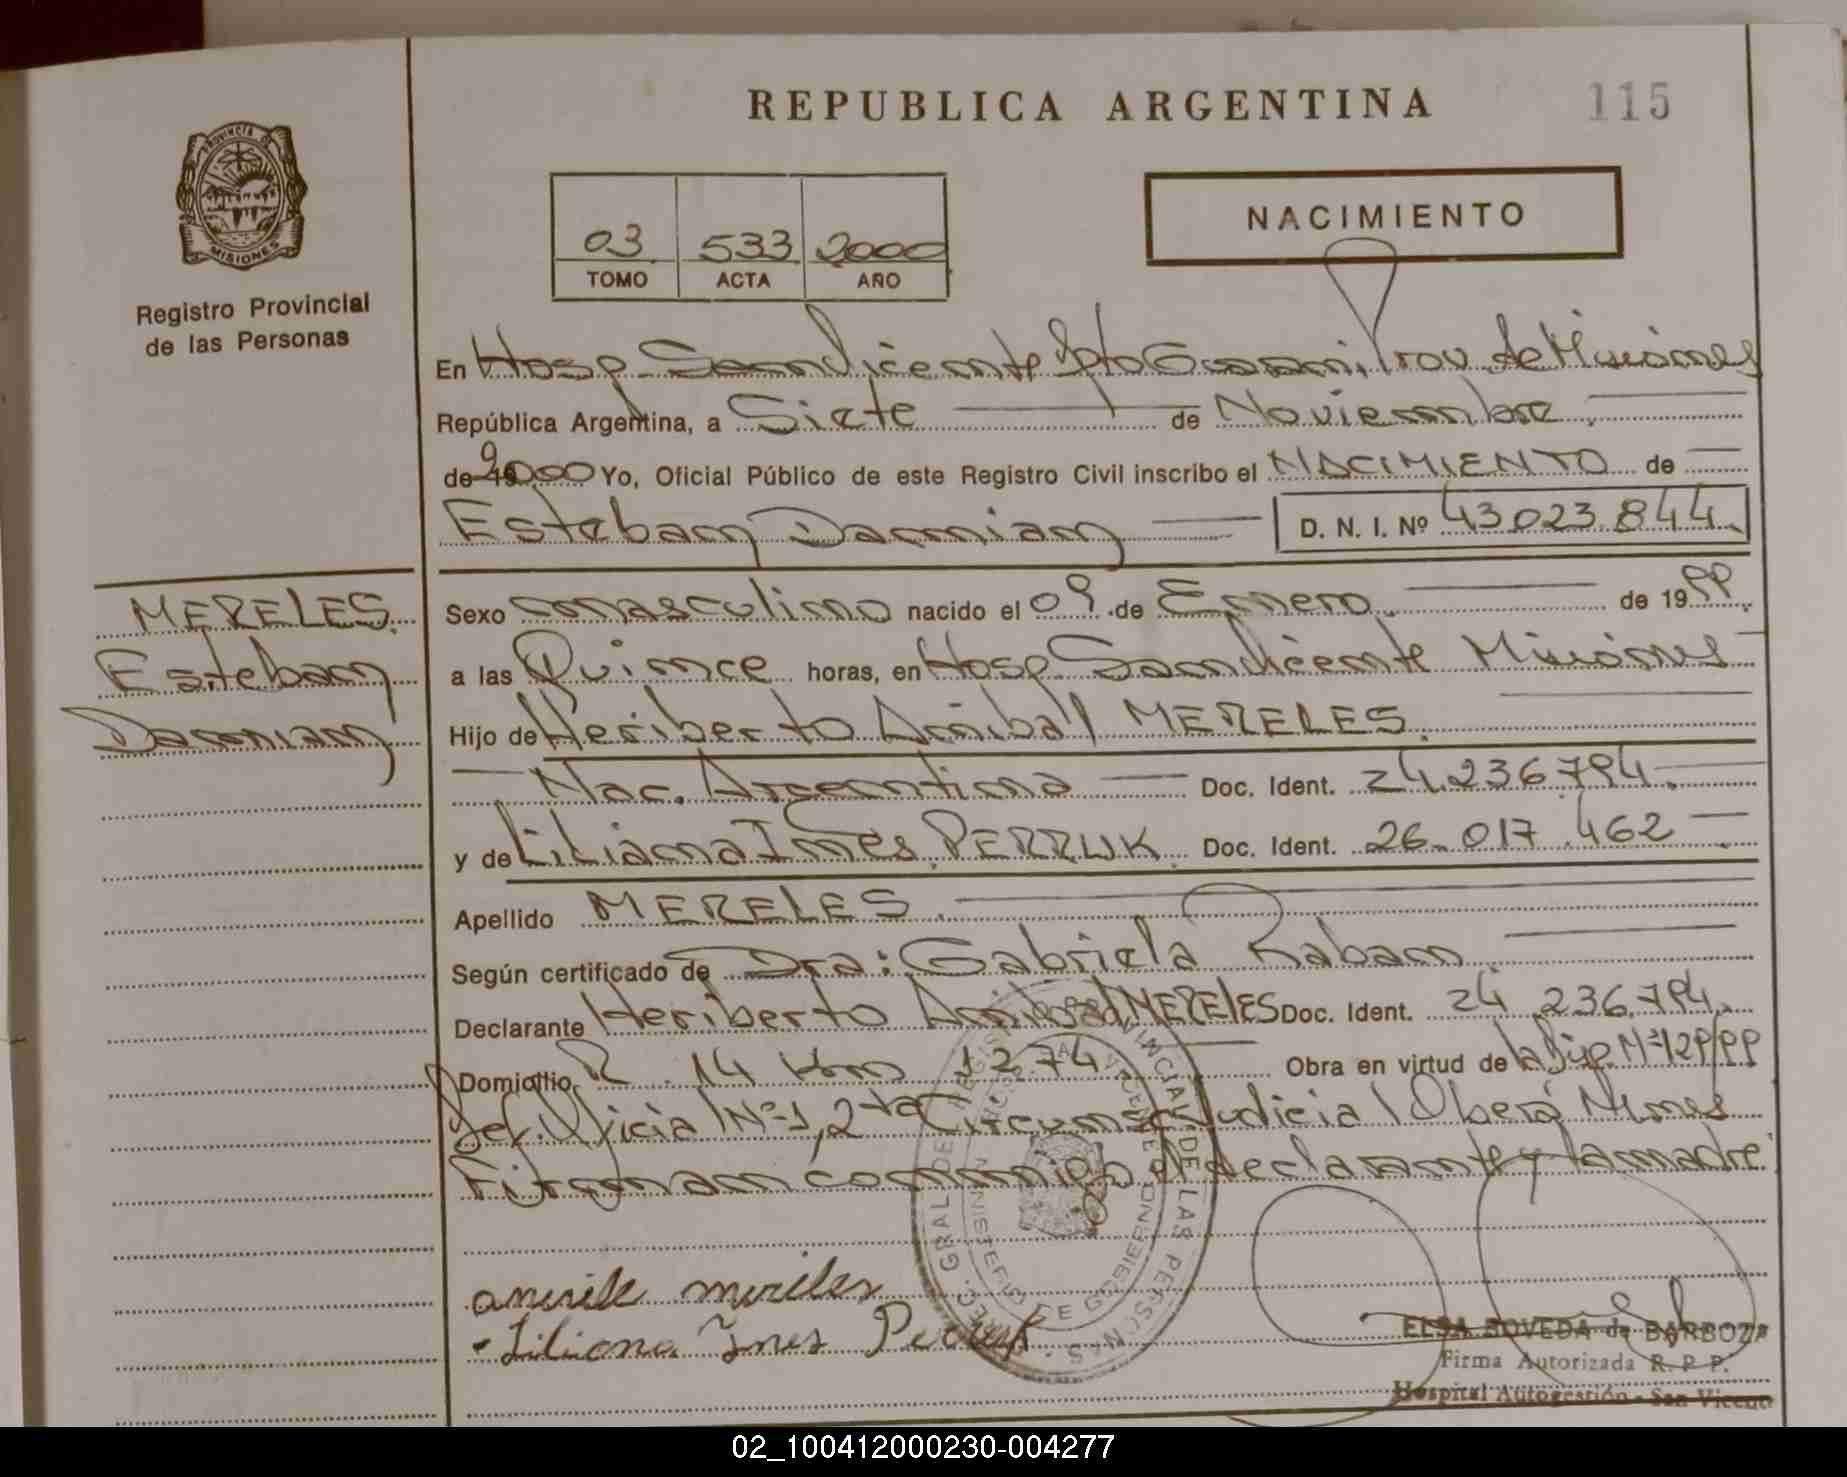 REPUBLICA ARGENTINA
115
PROVINCIA DE
MISIONES
Registro Provincial
de las Personas
03 533 2000
TOMO ACTA AÑO
NACIMIENTO
En Hosp. San Vicente Dpto Guarani, Prov. de Misiones
República Argentina, a Siete de Noviembre
de 2000 Yo, Oficial Público de este Registro Civil inscribo el NACIMIENTO de
Esteban Damian D. N. I. Nº 43023.844
MERELES.
Esteban
Damian
Sexo masculino nacido el 09 de Enero. de 1999.
a las Quince horas, en Hosp. San Vicente Misiones
Hijo de Heriberto Anibal MERELES.
Nac. Argentina Doc. Ident. 24.236.794.
y de Liliana Ines PERRUK. Doc. Ident. 26.017.462
Apellido MERELES.
Según certificado de Dra: Gabriela Raban.
Declarante Heriberto Anibal MERELES Doc. Ident. 24.236.794.
Domicilio R. 14 Km 1274 Obra en virtud de la Nº 129/99
Def. Oficial Nº 1, 2ta Circunsc. Judicial Oberá Mnes
Firman conmigo el declarante y la madre.
mereles
- Liliana Ines Perruk
MINISTERIO DE GOBIERNO
ELSA BOVEDA de BARBOZA
Firma Autorizada R. P. P.
Hospital Autogestión - San Vicente
02_100412000230-004277